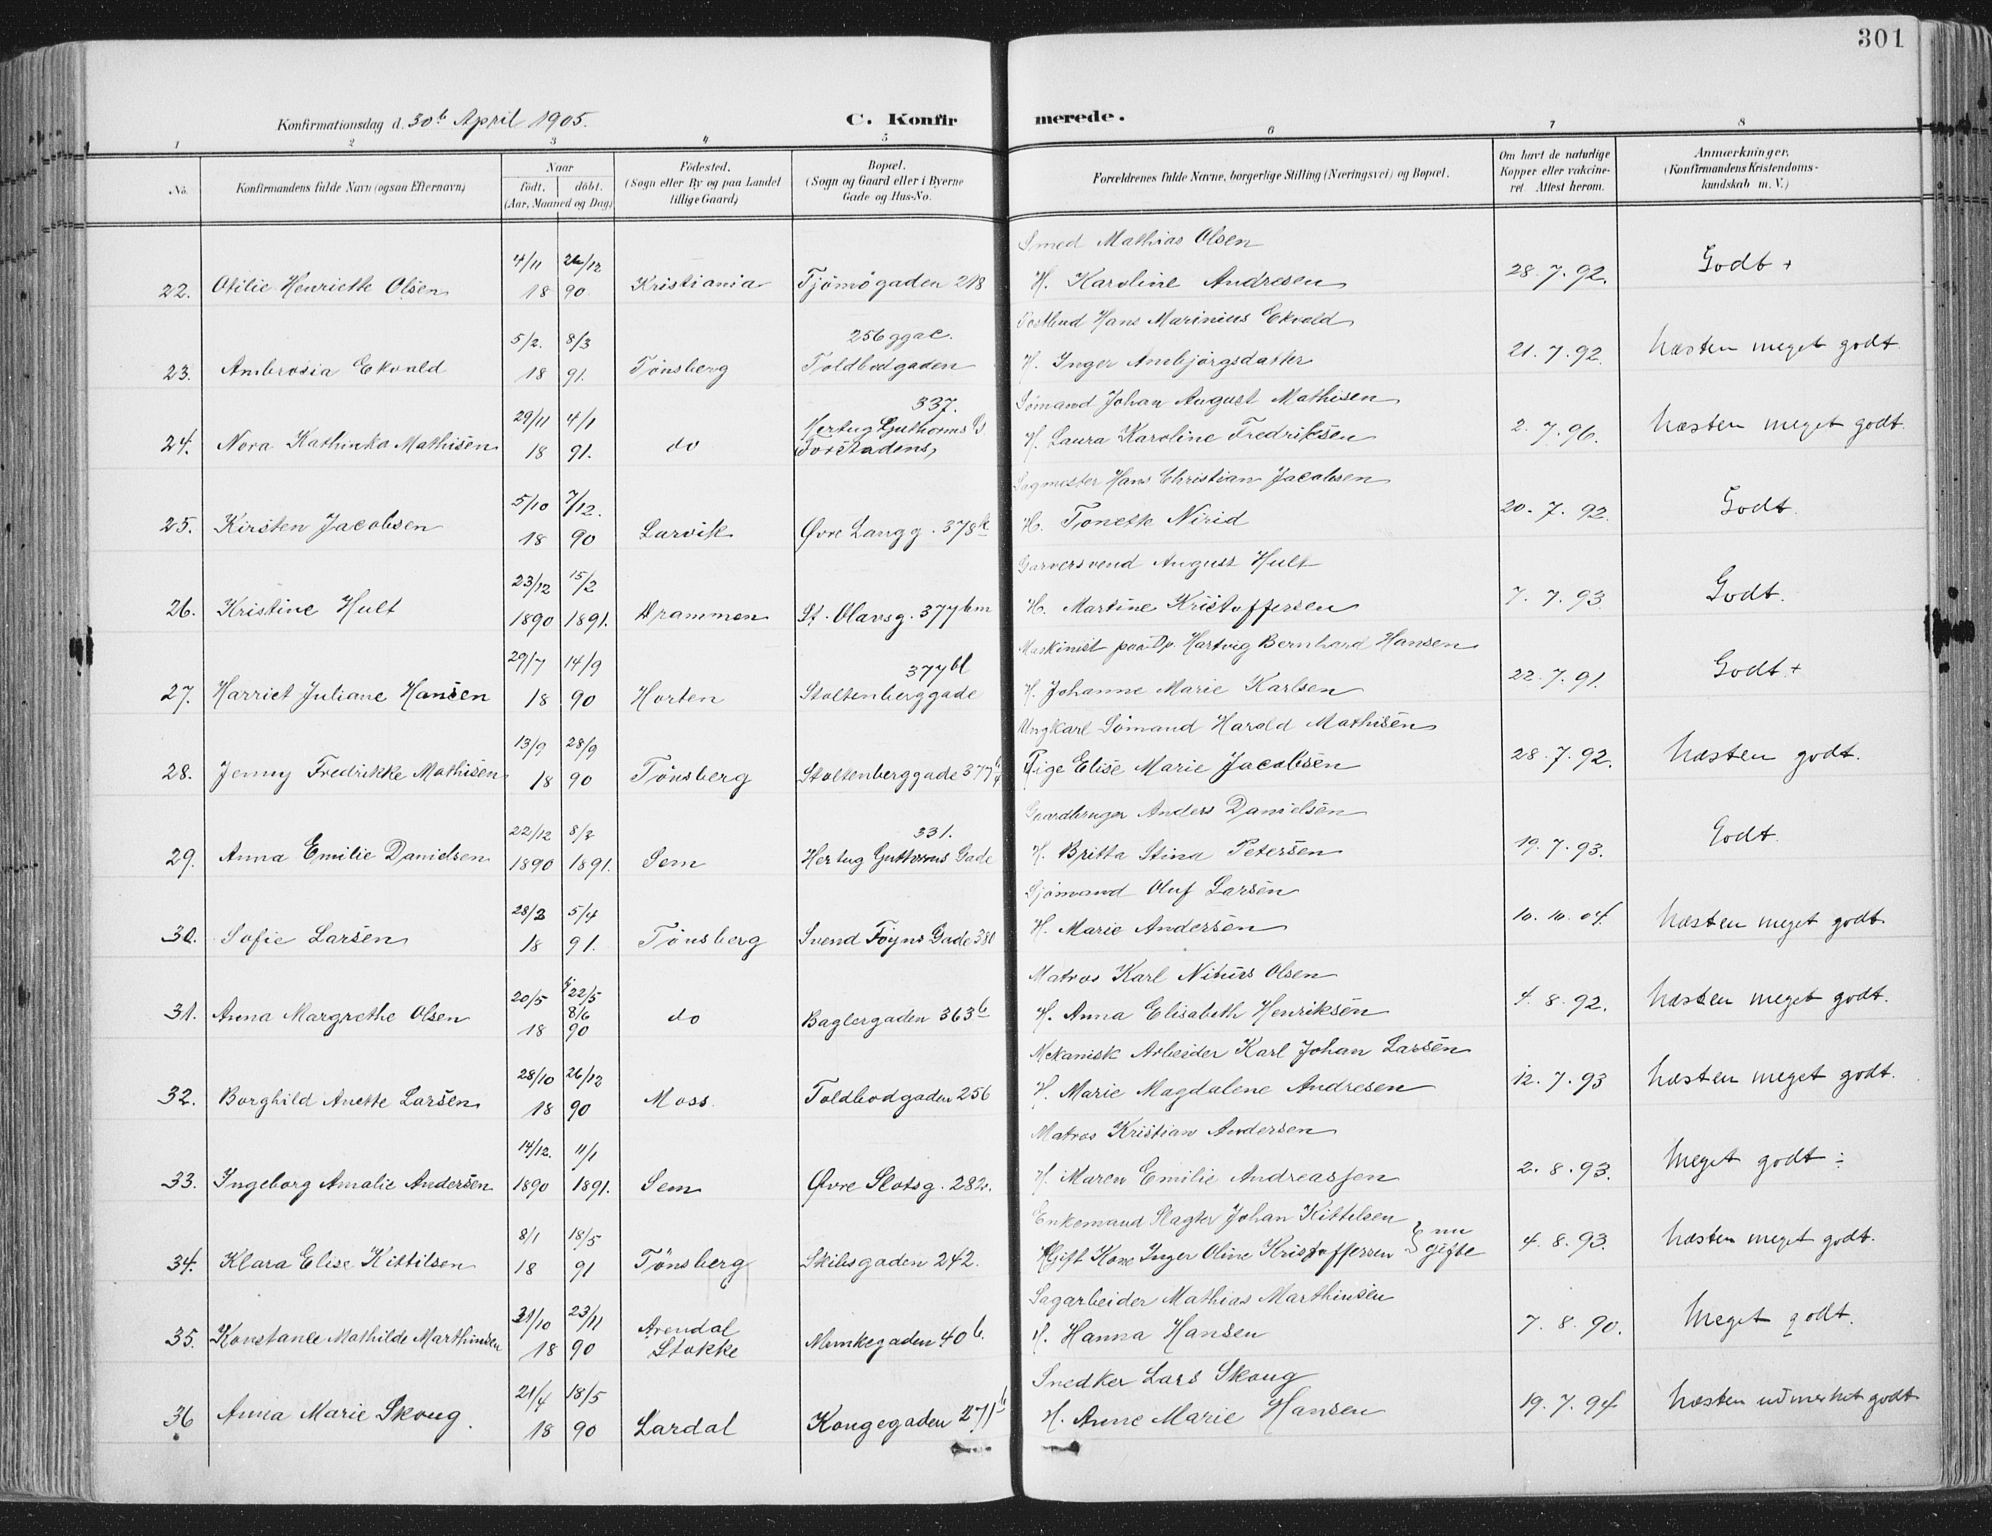 301
Konfirmationsdag d. 30te April 1905.
C. Konfirmerede.
1 2 3 4 5 6 7 8
No. Konfirmandens fulde Navn (ogsaa Efternavn) Naar født. døbt. (Aar, Maaned og Dag) Fødested. (Sogn eller By og paa Landet tillige Gaard) Bopæl. (Sogn og Gaard eller i Byerne Gade og Hus-No. Forældrenes fulde Navne, borgerlige Stilling (Næringsvei) og Bopæl. Om havt de naturlige Kopper eller vakcineret Attest herom. Anmærkninger. (Konfirmandens Kristendomskundskab m. V.)
4/11 26/12 Smed Mathias Olsen
22. Otilie Henriette Olsen 18 90 Kristiania Tjømøgaden 218 H. Karoline Andresen 28.7.92. Godt +
5/2. 8/3 256 Postbud Hans Marinius Ekvold
23. Ambrosia Ekvold 18 91. Tønsberg Toldbodgaden H. Inger Ambjørgsdatter 21.7.92. Næsten meget godt.
29/11 4/1 337. Sømand Johan August Mathisen
24. Nora Kathinka Mathisen 18 91. do Hertug Guthorms G H. Laura Karoline Fredriksen 2.7.96. Næsten meget godt.
5/10 7/12. Sagmester Hans Christian Jacobsen
25. Kirsten Jacobsen 18 90 Larvik Øvre Langg. 378 H. Tonette Nirid 20.7.92. Godt.
23/12 15/2 Garversvend August Hult
26. Kristine Hult 1890 1891. Drammen St. Olavsg. 377bm H. Martine Kristoffersen 7.7.93. Godt.
29/7 14/9 377bl Maskinist paa Dp. Hartvig Bernhard Hansen
27. Harriet Juliane Hansen 18 90 Horten Stoltenberggade H. Johanne Marie Karlsen 22.7.91. Godt +
13/9 28/9 Ungkarl Sømand Harald Mathisen
28. Jenny Fredrikke Mathisen 18 90 Tønsberg Stoltenberggade 377 Pige Elise Marie Jacobsen 28.7.92. Næsten godt.
22/12 8/3 331. Gaardbruger Anders Danielsen
29. Anna Emilie Danielsen 1890 1891. Sem Hertug Guthorms Gade H. Britta Stina Petersen 19.7.93. Godt.
28/2 5/4 Sjømand Oluf Larsen
30. Sofie Larsen 18 91. Tønsberg Svend Føyns Gade 380 H. Marie Andersen 10.10.04. Næsten meget godt.
20/5 22/5 8/6 Matros Karl Olsen
31. Anna Margrethe Olsen 18 90 do Baglergaden 363b H. Anna Elisabeth Henriksen 4.8.92. Næsten meget godt.
28/10 26/12 Mekanisk Arbeider Karl Johan Larsen
32. Borghild Anette Larsen 18 90 Moss. Toldbodgaden 256 H. Marie Magdalene Andresen 12.7.93 Næsten meget godt.
14/12. 11/1 Matros Kristian Andersen
33. Ingeborg Amalie Andersen 1890 1891. Sem Øvre Slotsg. 282. H. Maren Emilie Andreassen 2.8.93. Meget godt ÷
8/1 18/5 Enkemand Slagter Johan Kittilsen } nu
34. Klara Elise Kittilsen 18 91 Tønsberg Skibsgaden 242. Gift Kone Inger Oline Kristoffersen gifte 4.8.93. Næsten meget godt.
31/10 23/11 Arendal Sagarbeider Mathias Marthinsen
35. Konstance Mathilde Marthinsen 18 90 Stokke Munkegaden 40b. H. Hanna Hansen 7.8.90. Meget godt.
21/4 18/5 Snedker Lars Skoug
36 Anna Marie Skoug. 18 90 Lardal Kongegaden 271b H. Anne Marie Hansen 19.7.94. Næsten udmerket godt